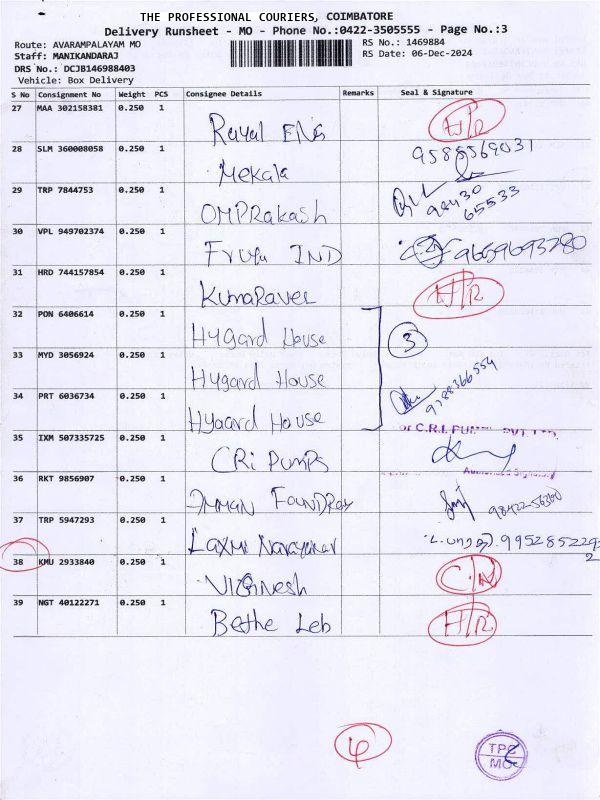 THE PROFESSIONAL COURIERS, COIMBATORE
Delivery Runsheet - MO - Phone No.:0422-3505555 - Page No.:3
Route: AVARAMPALAYAM MO RS No.: 1469884
Staff: MANIKANDARAJ RS Date: 06-Dec-2024
DRS No.: DCJB146988403
Vehicle: Box Delivery
S No Consignment No Weight PCS Consignee Details Remarks Seal & Signature
27 MAA 302158381 0.250 1 Royal ENG
28 SLM 360008058 0.250 1 Mekala 9585569031
29 TRP 7844753 0.250 1 OMPRakash 94430 65533
30 VPL 949702374 0.250 1 IND 9659693280
31 HRD 744157854 0.250 1 KumaRavel
32 PON 6406614 0.250 1 Hygard House 3
33 MYD 3056924 0.250 1 Hygard House
34 PRT 6036734 0.250 1 Hygard House 9788366554
35 IXM 507335725 0.250 1 CRi Pumps
36 RKT 9856907 0.250 1 Imman FoundRey 98422-56360
37 TRP 5947293 0.250 1 Laxmi Narayanan
38 KMU 2933840 0.250 1 VIGnesh
39 NGT 40122271 0.250 1 Bethe Leb